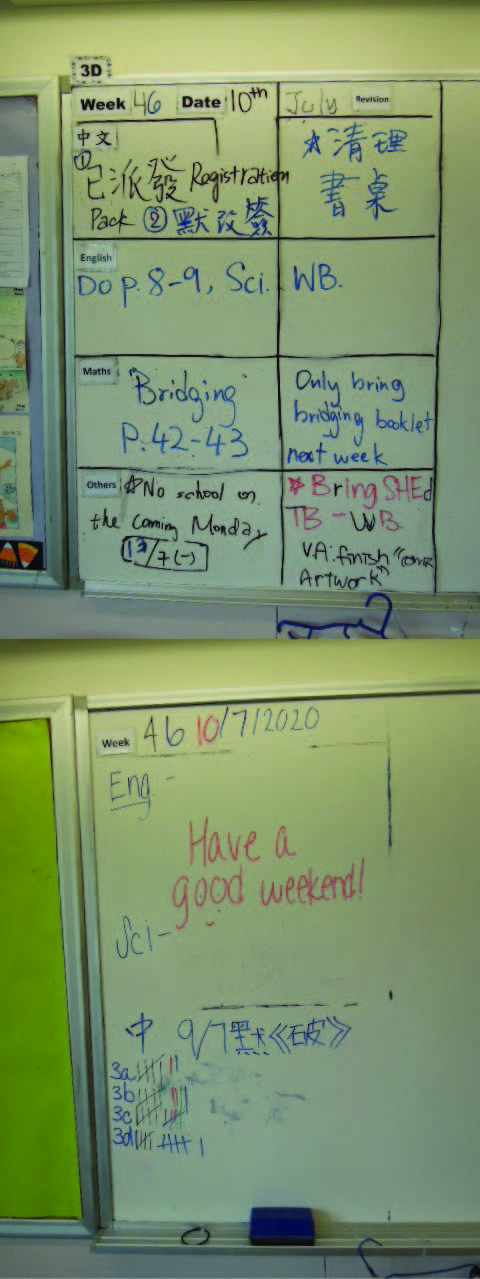 3D
Week 46 Date 10th July Revision
中文
① 已派發 Registration
Pack ② 默改簽
★清理
書桌
English
Do p.8-9, Sci. WB.
Maths
"Bridging"
P.42-43
Only bring
bridging booklet
next week
Others ☆No school on
the coming Monday
13/7(一)
☆Bring SHEd
TB - WB.
VA: finish "comic
Artwork"
Week 46 10/7/2020
Eng -
Have a
good weekend!
Sci -
中 9/7默《石皮》
3a
3b
3c
3d